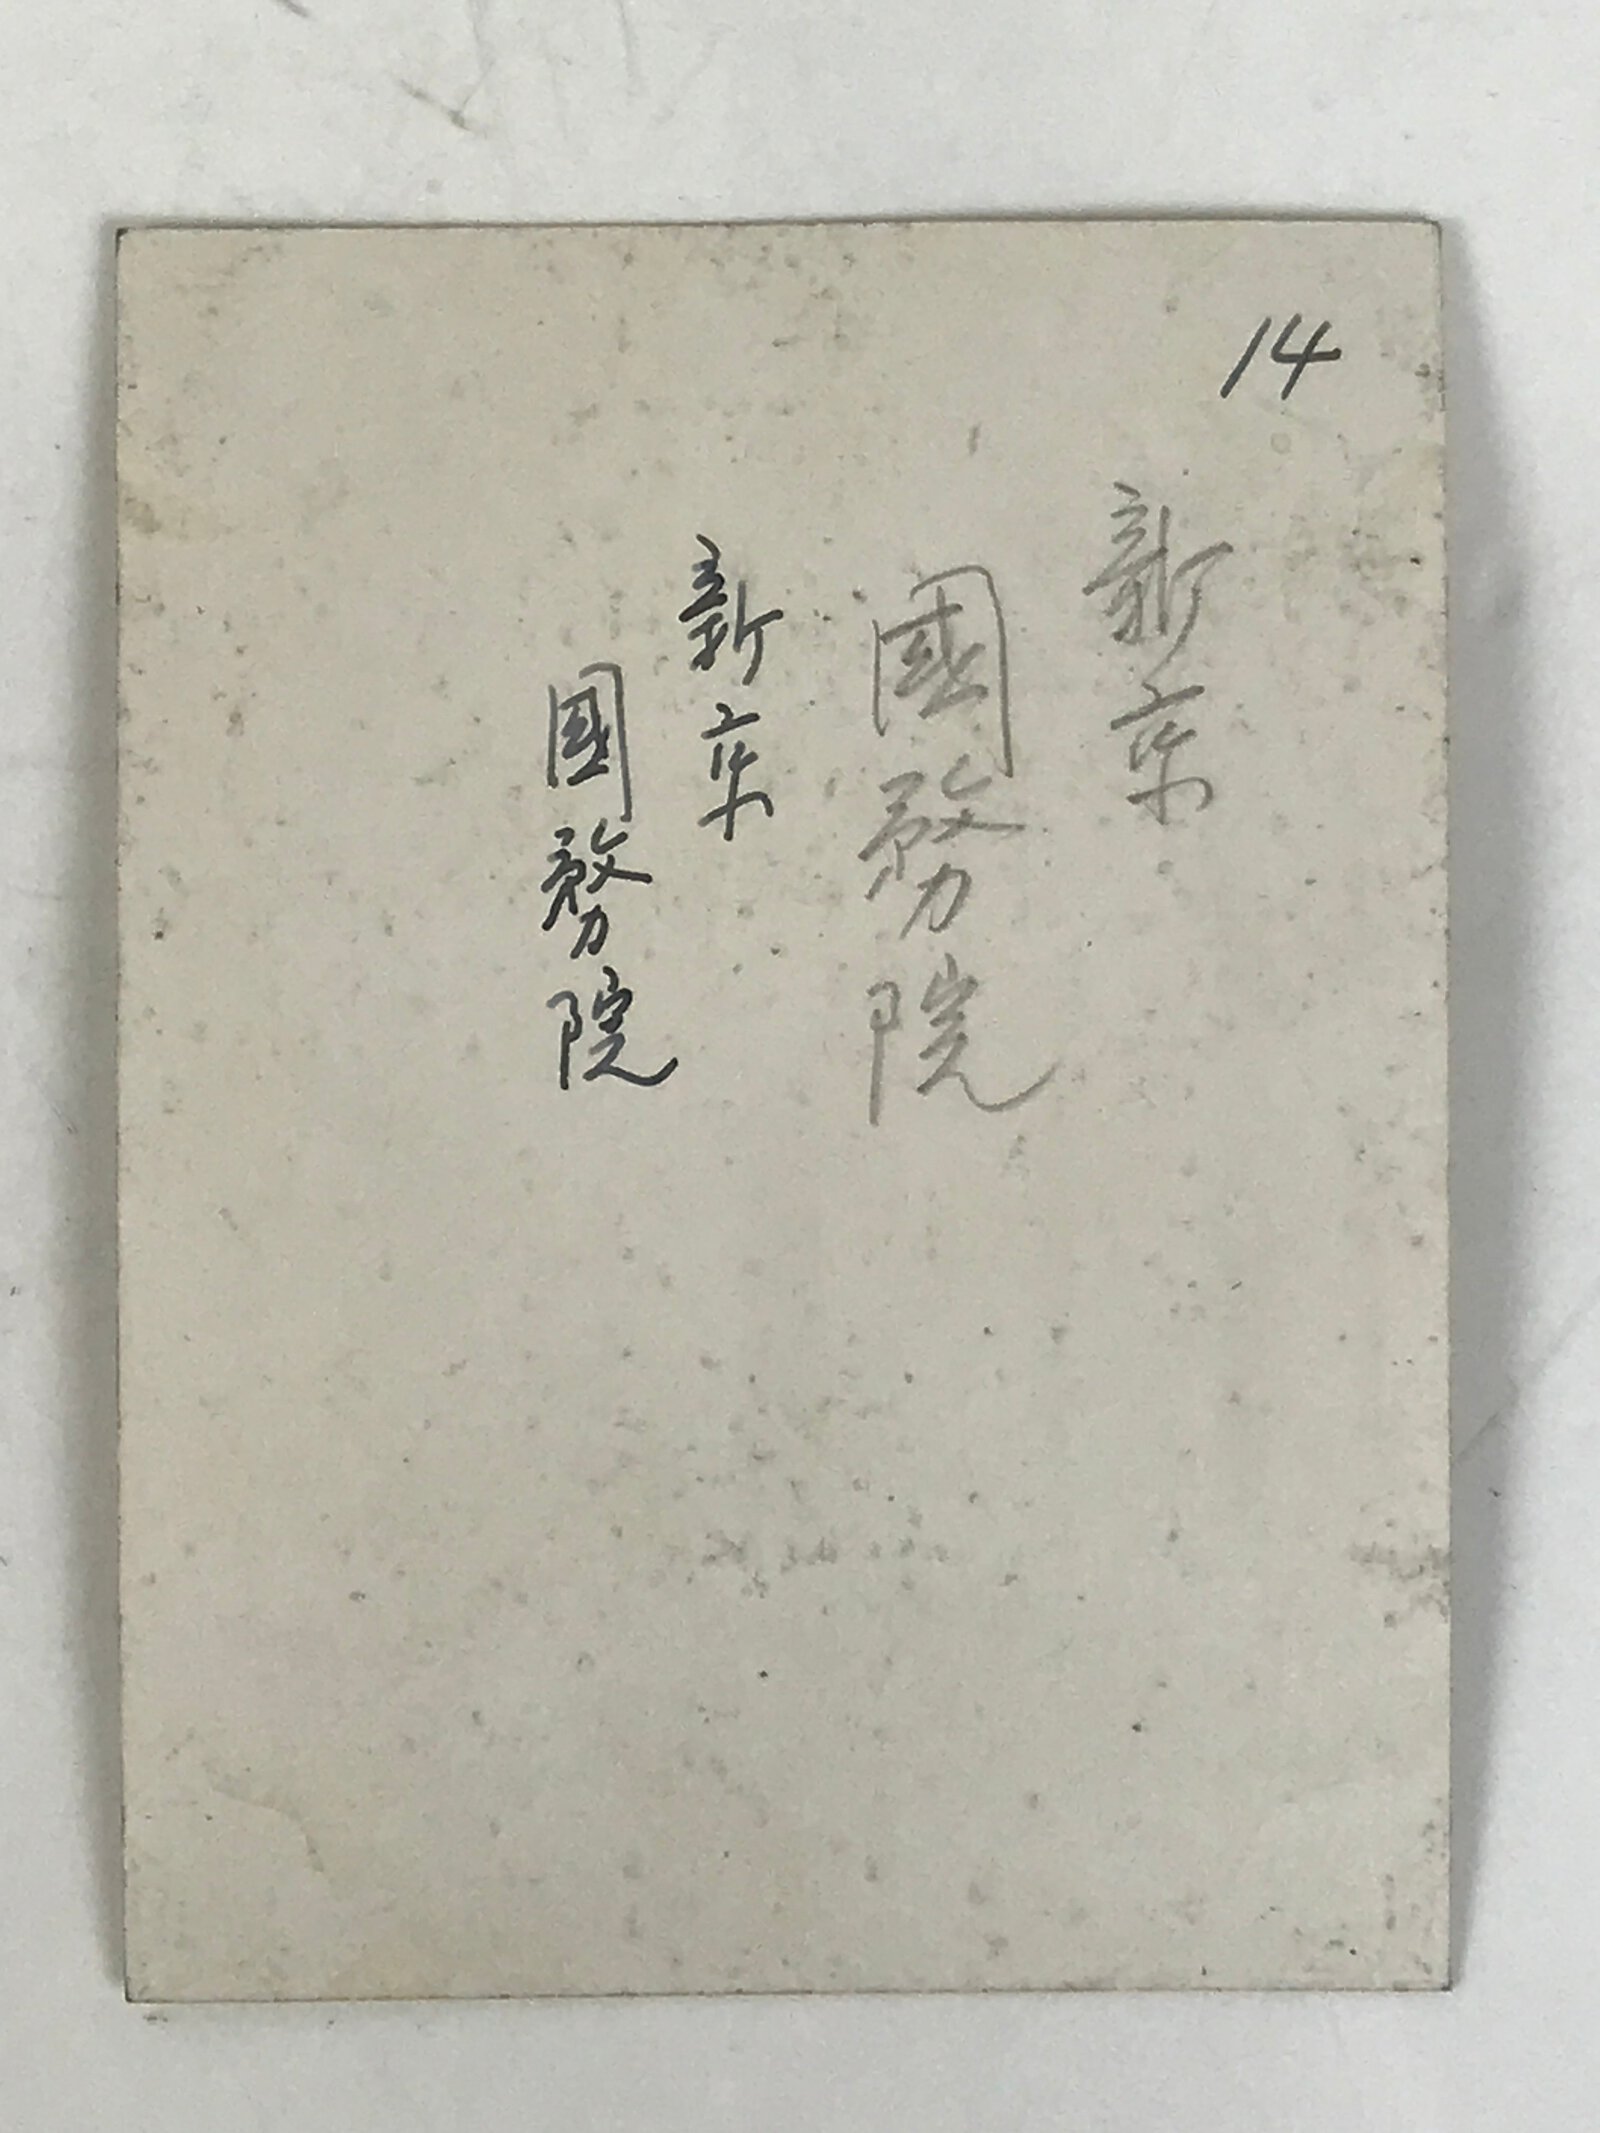 14
新京
國務院
新京
國務院